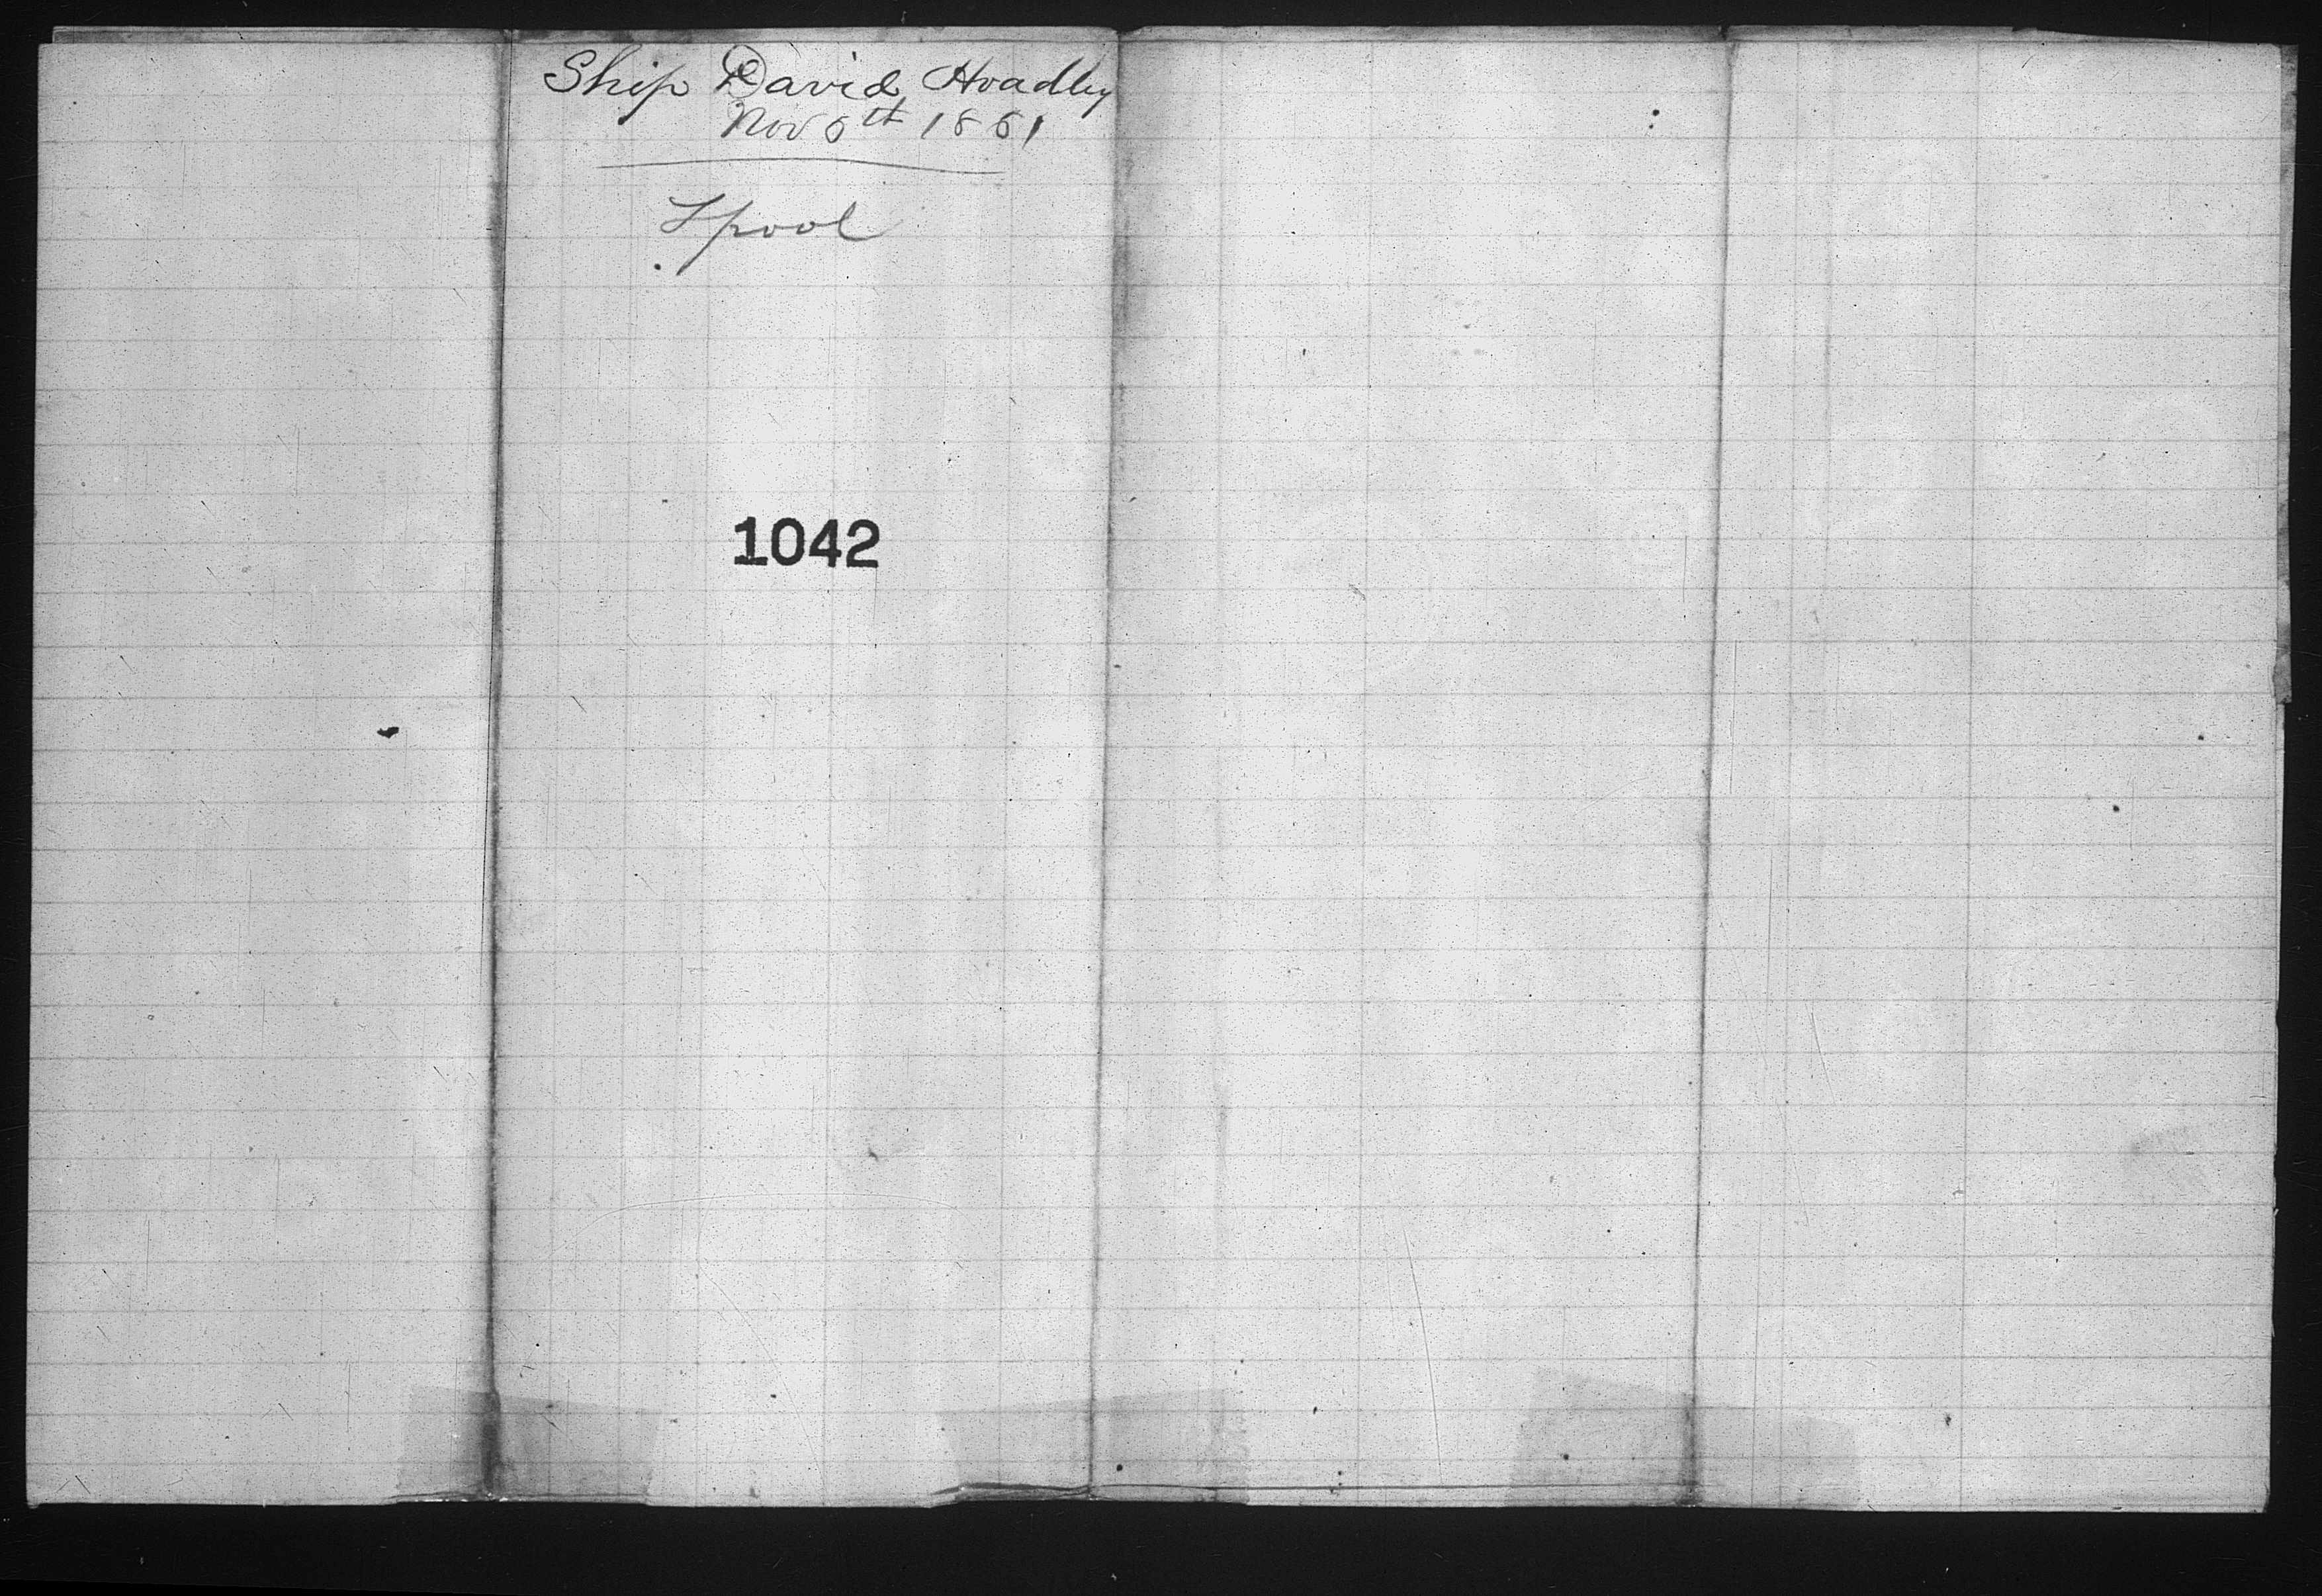 Ship David Hoadley
Nov 6th 1861
Lpool
1042